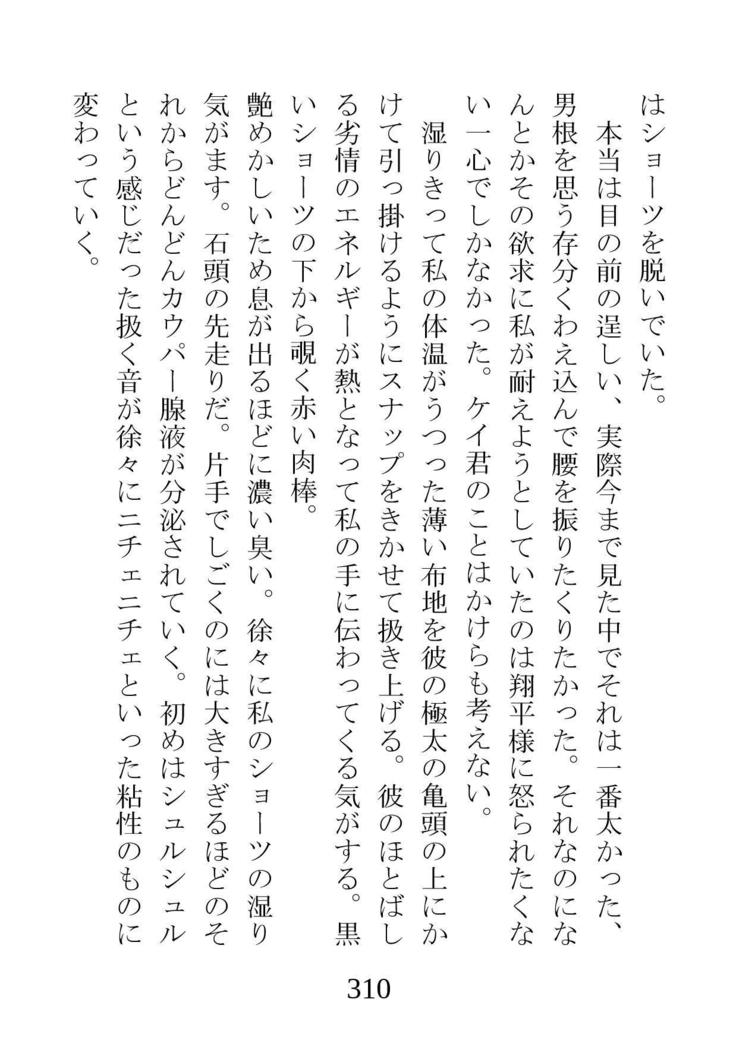 はショーツを脱いでいた。
　本当は目の前の逞しい、実際今まで見た中でそれは一番太かった、
男根を思う存分くわえ込んで腰を振りたくりたかった。それなのにな
んとかその欲求に私が耐えようとしていたのは翔平様に怒られたくな
い一心でしかなかった。ケイ君のことはかけらも考えない。
　湿りきって私の体温がうつった薄い布地を彼の極太の亀頭の上にか
けて引っ掛けるようにスナップをきかせて扱き上げる。彼のほとばし
る劣情のエネルギーが熱となって私の手に伝わってくる気がする。黒
いショーツの下から覗く赤い肉棒。
艶めかしいため息が出るほどに濃い臭い。徐々に私のショーツの湿り
気がます。石頭の先走りだ。片手でしごくのには大きすぎるほどのそ
れからどんどんカウパー腺液が分泌されていく。初めはシュルシュル
という感じだった扱く音が徐々にニチェニチェといった粘性のものに
変わっていく。
310